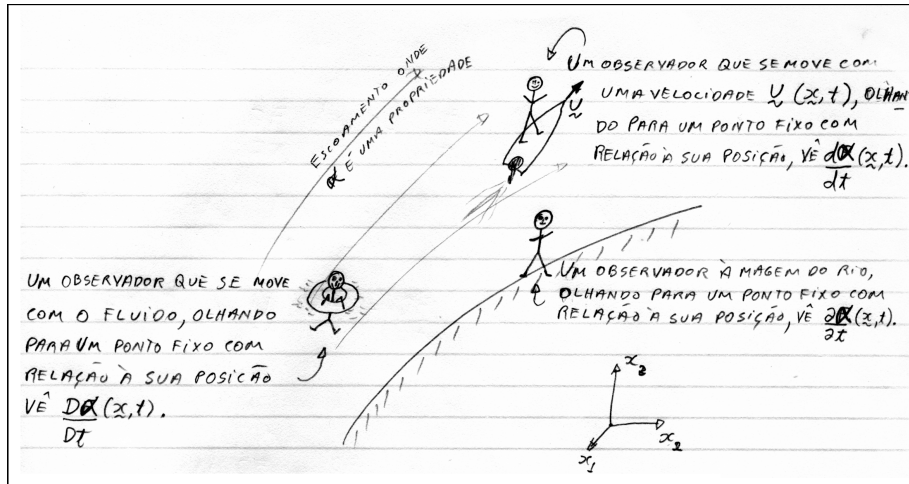 ESCOAMENTO ONDE
α É UMA PROPRIEDADE
UM OBSERVADOR QUE SE MOVE COM
UMA VELOCIDADE U (x,t), OLHAN
DO PARA UM PONTO FIXO COM
RELAÇÃO À SUA POSIÇÃO, VÊ dα (x,t).
dt
U
UM OBSERVADOR QUE SE MOVE
COM O FLUIDO, OLHANDO
PARA UM PONTO FIXO COM
RELAÇÃO À SUA POSIÇÃO
VÊ Dα (x,t).
Dt
UM OBSERVADOR À MAGEM DO RIO,
OLHANDO PARA UM PONTO FIXO COM
RELAÇÃO À SUA POSIÇÃO, VÊ ∂α (x,t).
∂t
x3
x2
x1